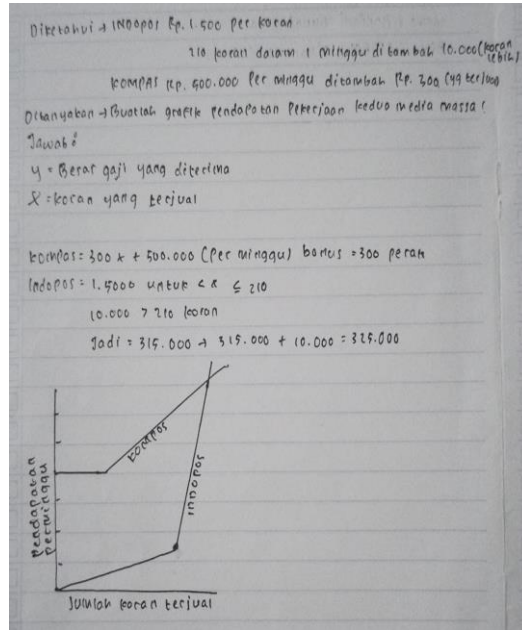 Diketahui → INDOPOS Rp. 1.500 Per koran
210 koran dalam 1 minggu di tambah 10.000 (koran lebih)
KOMPAS Rp. 500.000 Per minggu ditambah Rp. 300 (yg terjual
Ditanyakan → Buatlah grafik Pendapatan Pekerjaan kedua media massa!
Jawab :
y = Besar gaji yang diterima
X = koran yang terjual
kompas = 300 x + 500.000 (Per minggu) bonus = 300 peran
Indopos = 1.5000 untuk < x ≤ 210
10.000 > 210 koran
Jadi = 315.000 → 315.000 + 10.000 = 325.000
KOMPAS
INDOPOS
Pendapatan
perminggu
Jumlah koran terjual